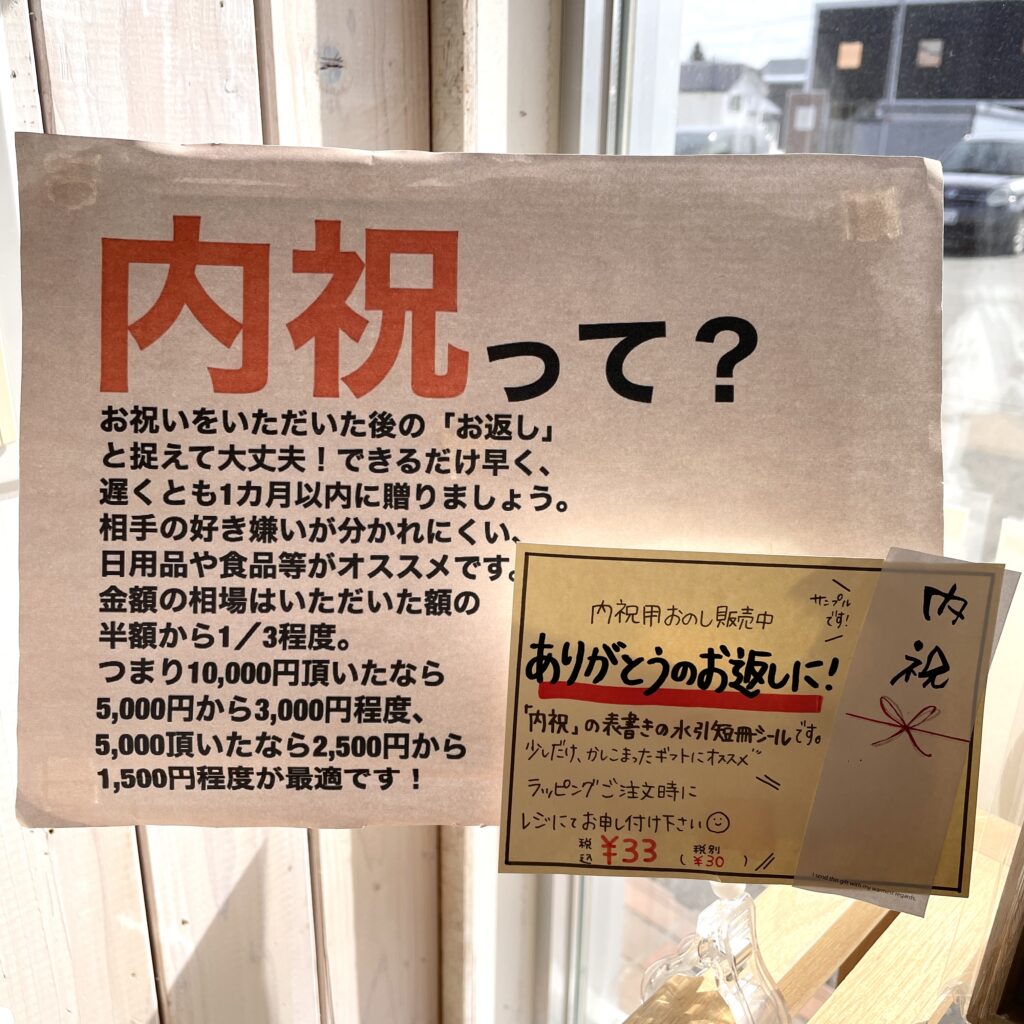 内祝って？
お祝いをいただいた後の「お返し」
と捉えて大丈夫！できるだけ早く、
遅くとも1カ月以内に贈りましょう。
相手の好き嫌いが分かれにくい、
日用品や食品等がオススメです。
金額の相場はいただいた額の
半額から1／3程度。
つまり10,000円頂いたなら
5,000円から3,000円程度、
5,000頂いたなら2,500円から
1,500円程度が最適です！
内祝用おのし販売中
ありがとうのお返しに！
「内祝」の表書きの水引短冊シールです。
少しだけ、かしこまったギフトにオススメ
ラッピングご注文時に
レジにてお申し付け下さい
税込 ¥33 (税別 ¥30)
サンプル
です！
内祝
I send this gift with my warmest regards.